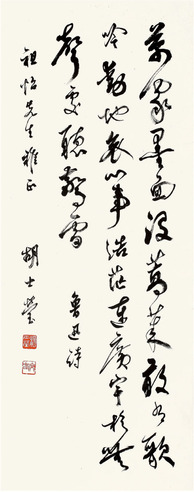 萬家墨面没蒿萊敢有歌
吟動地哀心事浩茫連廣宇於無
聲處聽驚雷
魯迅詩
祖怡先生雅正
胡士瑩